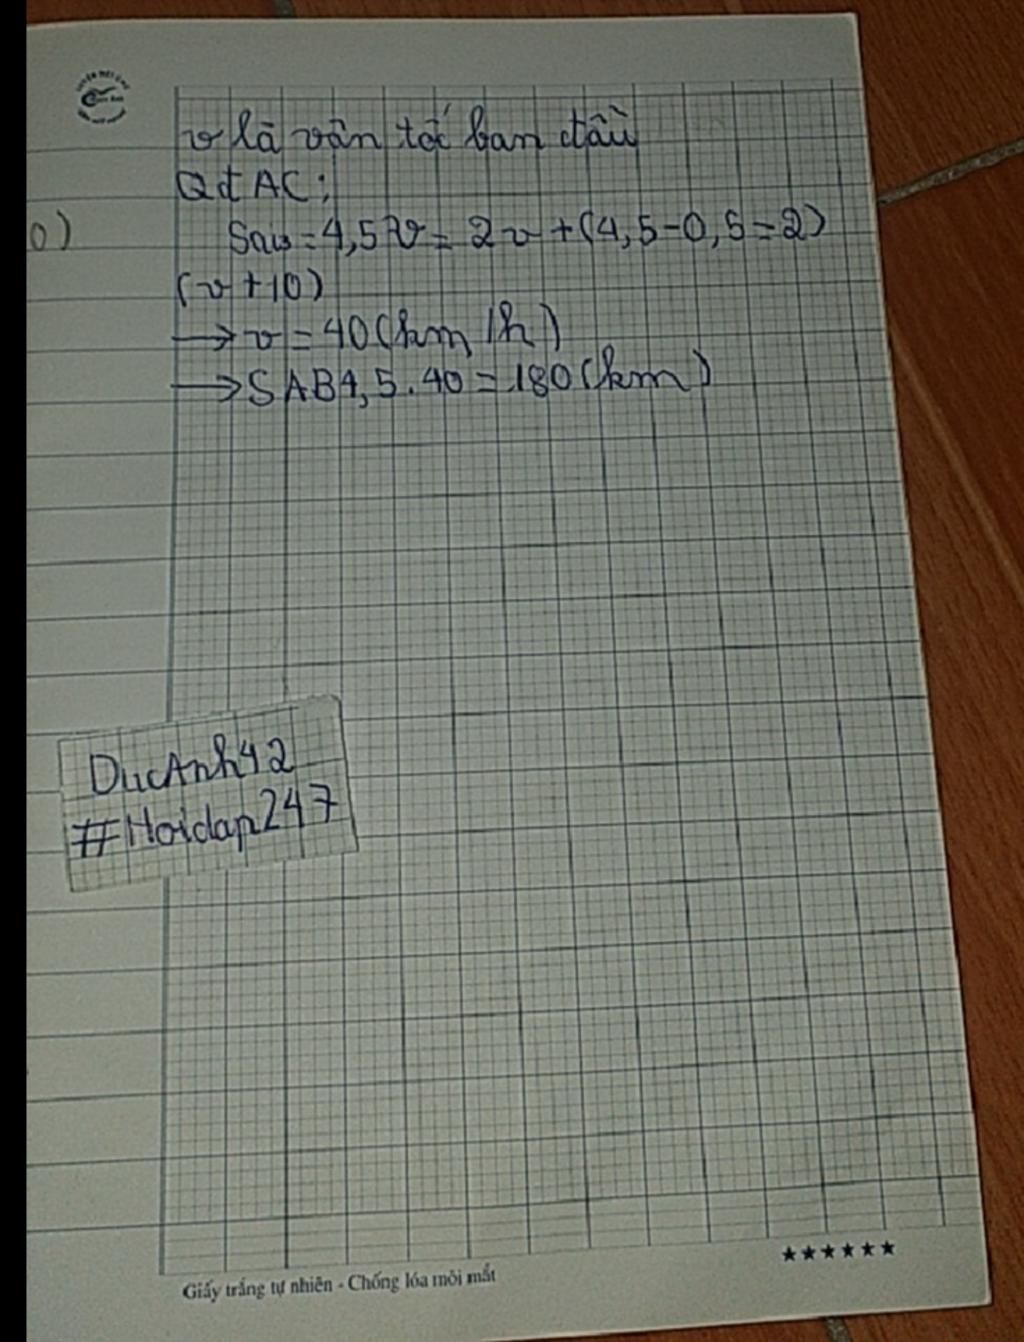 v là vận tốc ban đầu
QđAC:
0)
Sau = 4,5v = 2v + (4,5-0,5=2)
(v+10)
→ v = 40 (km/h)
→ SAB4,5.40 = 180 (km)
DucAnh42
#Hoidap247
★★★★★★
Giấy trắng tự nhiên - Chống lóa mỏi mắt